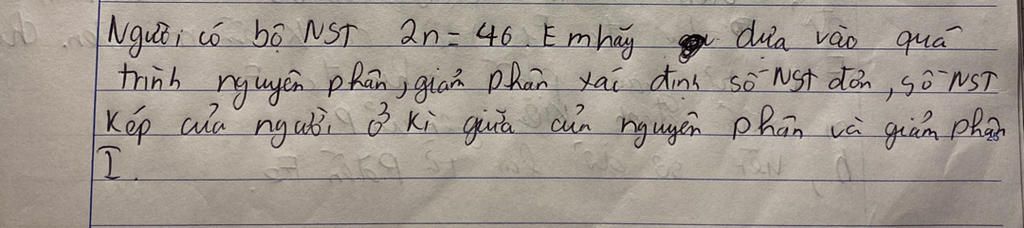 Người có bộ NST 2n = 46. Em hãy dựa vào quá
trình nguyên phân, giảm phân xác định số NST đơn, số NST
Kép của người ở kì giữa của nguyên phân và giảm phân
I.